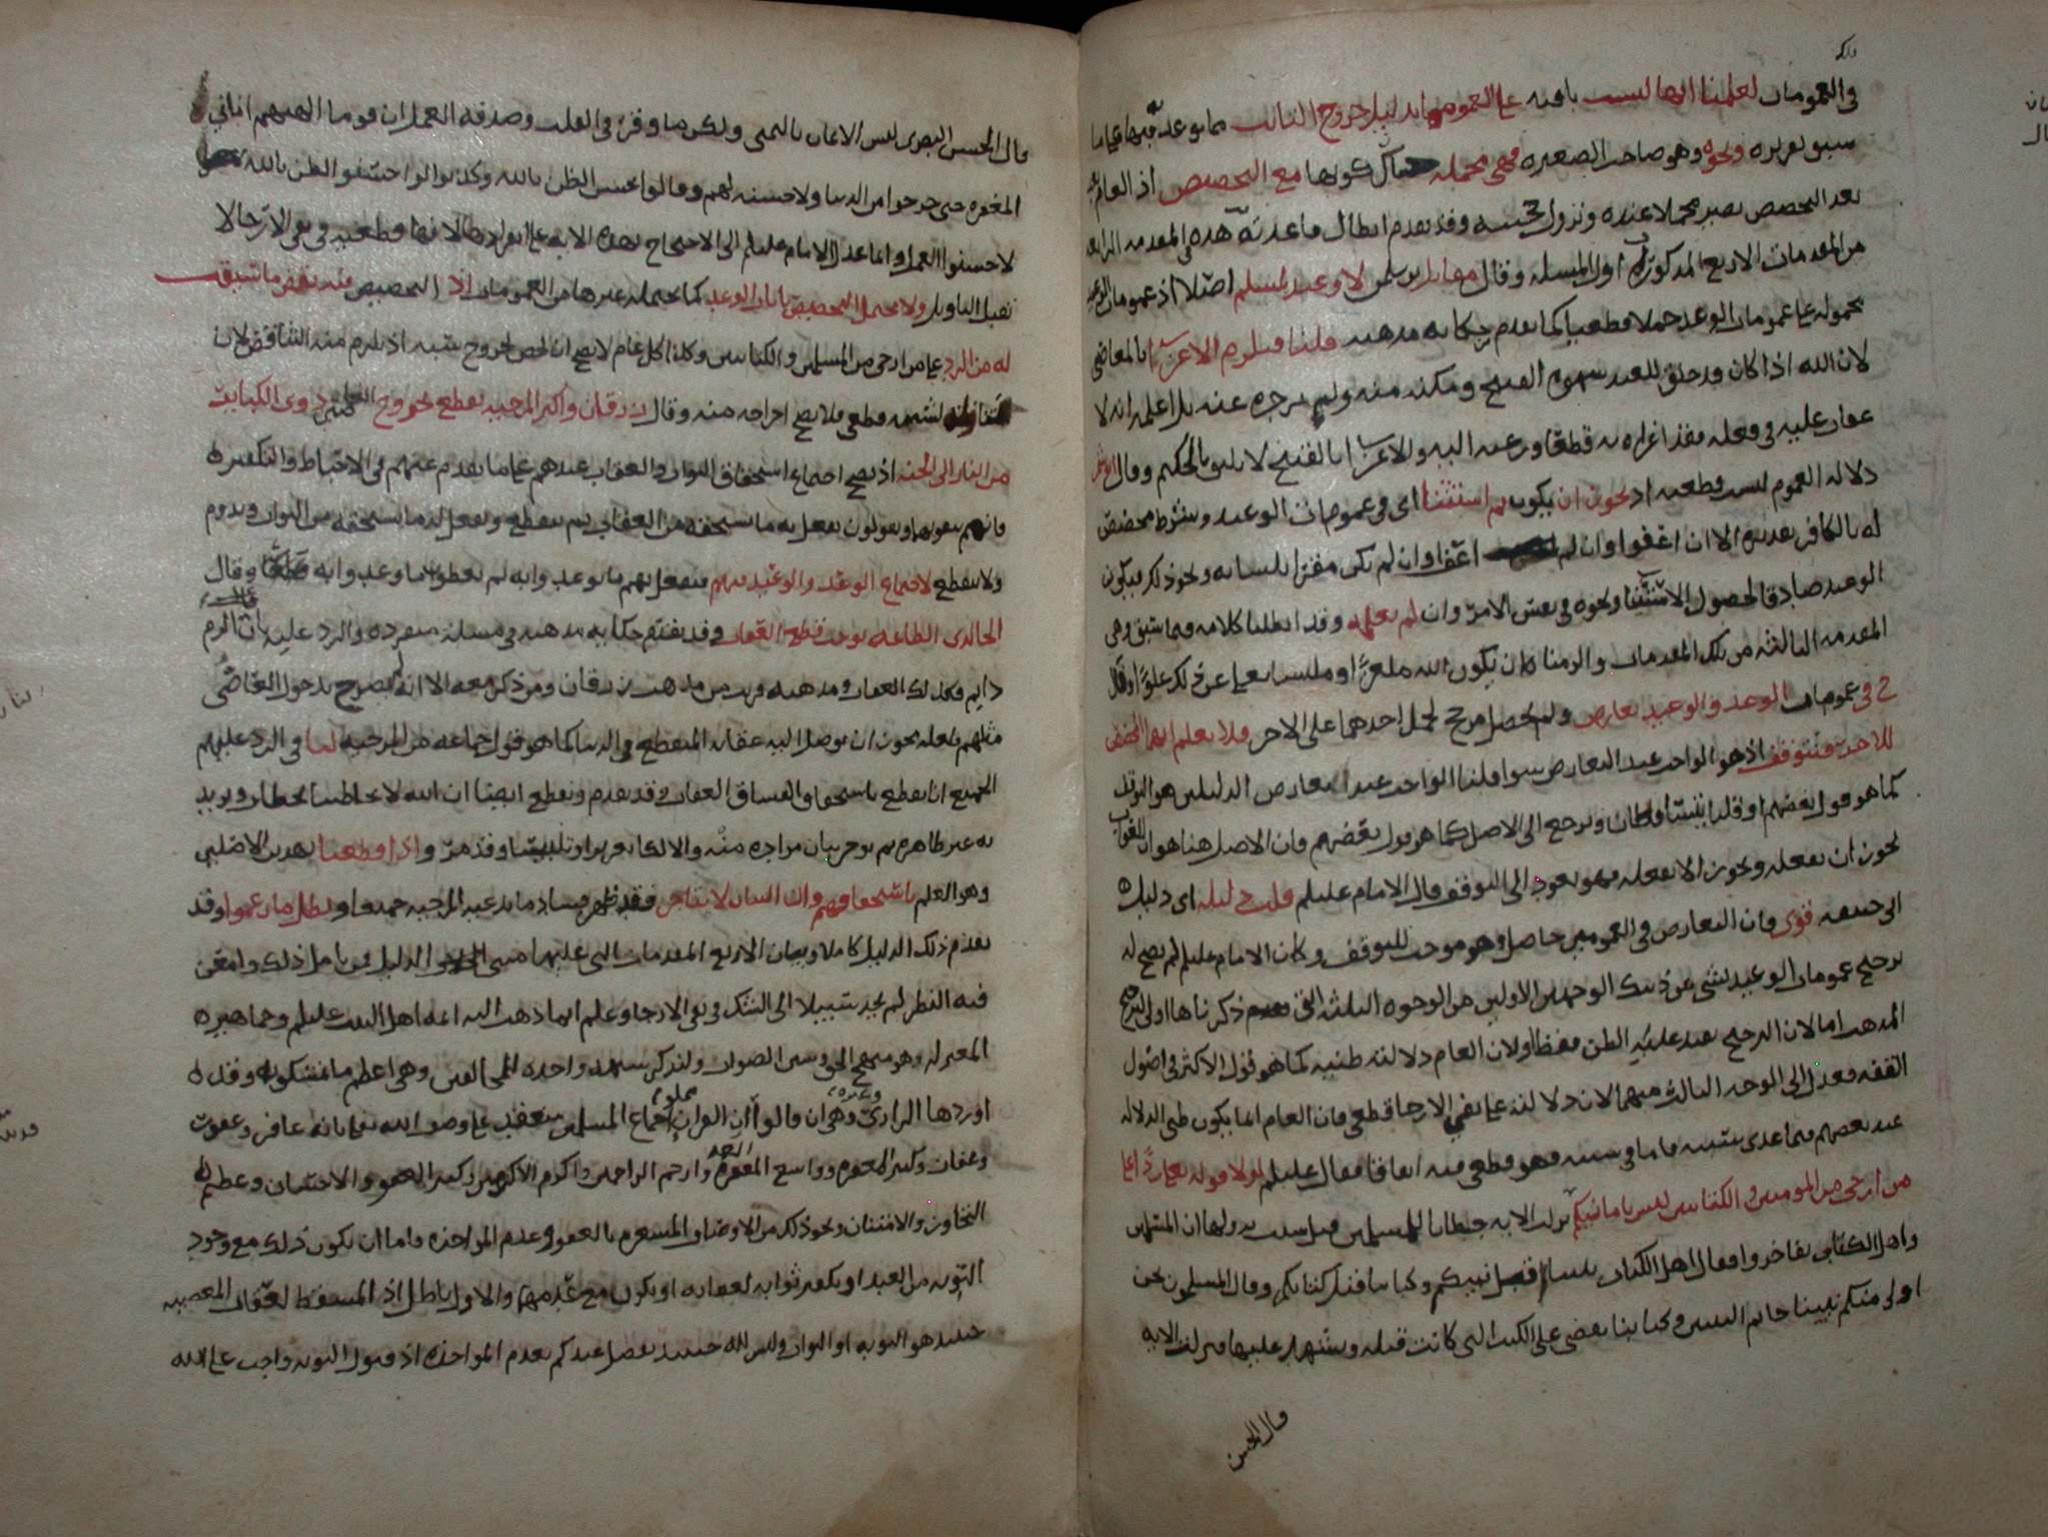 في العمومات لعلمنا انها ليست باقية على العموم بدليل خروج التائب مما توعد فيها على ما
سبق تقريره ونحوه وهو صاحب الصغيره فهي مجمله كونها مع التخصيص اذ العام
بعد التخصيص يصير مجملا عنده وتزول حجيته وقد تقدم ابطال ما عدته هذه في المقدمه الرابعه
من المقدمات الاربع المذكوره اول المسله وقال مقاتل بن سليمن لا وعيد لمسلم اصلا اذ عمومات الوعيد
محموله على عمومات الوعد حملا قطعيا كما تقدم حكايه مذهبه قلنا فيلزم الاغرا بالمعاصي
لان الله اذا كان قد خلق للعبد شهوه القبيح ومكنه منه ولم يزجره عنه بل اعلمه انه لا
عقاب عليه في فعله فقد اغراه به قطعا ورغبه اليه والاغرا بالقبيح لا يليق بالحكيم وقال
دلاله العموم ليست قطعيه اذ يجوز ان يكون ثم استثنا اي في عمومات الوعيد وبشرط مخصص
له بالكافر تقديره الا ان اعفوا وان لم اعفا وان لم يكن مقترا بلسانه ونحو ذلك فيكون
الوعيد صادقا لحصول الاستثنا ونحوه في نفس الامر وان لم نعلمه وقد ابطلنا كلامه فيما سبق وهي
المقدمه الثالثه من تلك المقدمات والزمنا ان يكون الله ملغزا او ملبسا تعالى عن ذلك علوا
في عمومات الوعد والوعيد تعارض ولم يحصل مرجح لحمل احدهما على الاخر فلا نعلم ايها المخصص
للاخر فنتوقف اذ هو الواجب عند التعارض سوا قلنا الواجب عند تعارض الدليلين هو التوقف
كما هو قول بعضهم او قلنا يتساقطان ونرجع الى الاصل كما هو قول بعضهم فان الاصل هنا هو ان العقاب
يجوز ان نفعله ويجوز الا نفعله فهو يعود الى التوقف قال الامام عليلم قلت دليله اي دليل
ابي حنيفه قوي فان التعارض في العمومين حاصل وهو موجب للتوقف وكان الامام عليلم لم يصح له
ترجيح عمومات الوعيد بشي من ذينك الوجهين الاولين من الوجوه الثلثه التي ذكرناها اولى الترجيح
المذهب اما لان الترجيح يفيد غلبه الظن فقط او لان العام دلالته ظنيه كما هو قول الاكثر في اصول
الفقه فعدل الى الوجه الثالث منهما لان دلالته على نفي الارجا قطعي فان العام انما يكون ظني الدلاله
عند بعضهم فيما عدى سببه فاما في سببه فهو قطعي فيه اتفاقا فقال عليلم لولا قوله تعلى ردا على
من ارجى من المومنين والكتابيين ليس بامانيكم نزلت الايه خطابا للمسلمين قيل سبب نزولها ان المسلمين
واهل الكتاب تفاخروا فقال اهل الكتاب نبينا قبل نبيكم وكتابنا قبل كتابكم وقال المسلمون نحن
اولى منكم نبينا خاتم النبيين وكتابنا يقضي على الكتب التي كانت قبله ويشهد عليها فنزلت الايه
قال الحسن
قال الحسن البصري ليس الايمان بالتمني ولكن ما وقر في القلب وصدقه العمل ان قوما الهتهم اماني
المغفره حتى خرجوا من الدنيا ولا حسنه لهم وقالوا نحسن الظن بالله وكذبوا لو احسنوا الظن بالله
لاحسنوا العمل وانما عدل الامام عليلم الى الاحتجاج بهذه الايه على انفرادها لانها قطعيه في نفي الارجا لا
تقبل التاويل ولا تحتمل التخصيص بايات الوعد كما يحتمله غيرها من العمومات اذ التخصيص فيه نقض ما سيقت
له من الرد على من ارجى من المسلمين والكتابيين وكذا كل عام لا يصح ان يخص لخروج سببه اذ يلزم منه التناقض لان
لسببه قطعي فلا يصح اخراجه منه وقال زرقان واكثر المرجيه نقطع بخروج ذوي الكباير
من النار الى الجنه اذ يصح اجتماع استحقاق الثواب والعقاب عندهم على ما تقدم عنهم في الاحباط والتكفير
فانهم ينفونهما ويقولون نفعل به ما يستحقه من العقاب ثم ينقطع ونفعل له ما يستحقه من الثواب ويدوم
ولا ينقطع لاجتماع الوعد والوعيد فيهم فنفعل بهم ما توعد وانه لم نقطع بما وعد وانه وقال
الخالدي الطاعه توجب قطع العقاب وقد تقدم حكايه مذهبه في مسلة منفرده والرد عليه بان الذم
دايم فكذلك العقاب ومذهبه قريب من مذهب زرقان ومن ذكر معه الا انه لم يصرح بدخول العاصي
مثلهم فلعله يجوز ان يوصل اليه عقابه المنقطع في الدنيا كما هو قول جماعه من المرجيه لنا في الرد عليهم
الجميع انا نقطع باستحقاق الفساق العقاب وقد تقدم ونقطع ايضا ان الله لا يخاطبنا بخطاب ويريد
به غير ظاهره ثم يوخر بيان مراده منه والا لكان تغريرا وتلبيسا وقد مر واذا قطعنا بهذين الاصلين
وهو العلم باستحقاقهم وان البيان لا يتاخر فقد ظهر فساد ما يدعيه المرجيه جميعا وبطل ما زعموا وقد
تقدم ذلك الدليل كاملا وبيان الاربع المقدمات التي عليها ابتنى الدليل فمن تامل ذلك وامعن
فيه النظر لم يجد سبيلا الى الشك في نفي الارجا وعلم انما ذهب اليه ائمه اهل البيت عليلم وجماهير
المعتزله وهو منهج الحق وسنن الصواب ولنذكر شبهه واحده للمخالفين وهي اعظم ما تمسكوا به وقد
اوردها الرازي وغيره وهي ان قالوا ان القران مملوء واجماع المسلمين منعقد على وصف الله تعالى بانه غافر وغفور
وغفار وكثير المغفره وواسع المغفره وارحم الراحمين واكرم الاكرمين وكثير العفو والاحسان وعظيم
التجاوز والامتنان ونحو ذلك من الاوصاف المشعره بالعفو وعدم المواخذه واما ان يكون ذلك مع وجود
التوبه من العبد او تكفير ثوابه لعقابه او يكون مع عدمهما والاول باطل اذ المسقط لعقاب المعصيه
حينيذ هو التوبه او الثواب وليس لله حينيذ تفضل عندكم بعدم المواخذه اذ قبول التوبه واجب على الله